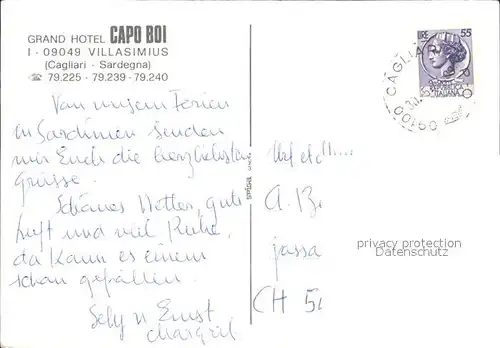 GRAND HOTEL CAPO BOI
I - 09049 VILLASIMIUS
(Cagliari - Sardegna)
☎ 79.225 - 79.239 - 79.240
Von unsern Ferien
in Sardinien senden
wir Euch die herzlichsten
Grüsse.
Schönes Wetter, gute
Luft und viel Ruhe,
da kann es einem
schon gefallen.
Ernst
Margrit
A. B
CH 5
LIRE 55
REPUBBLICA
ITALIANA
CAGLIA
privacy protection
Datenschutz